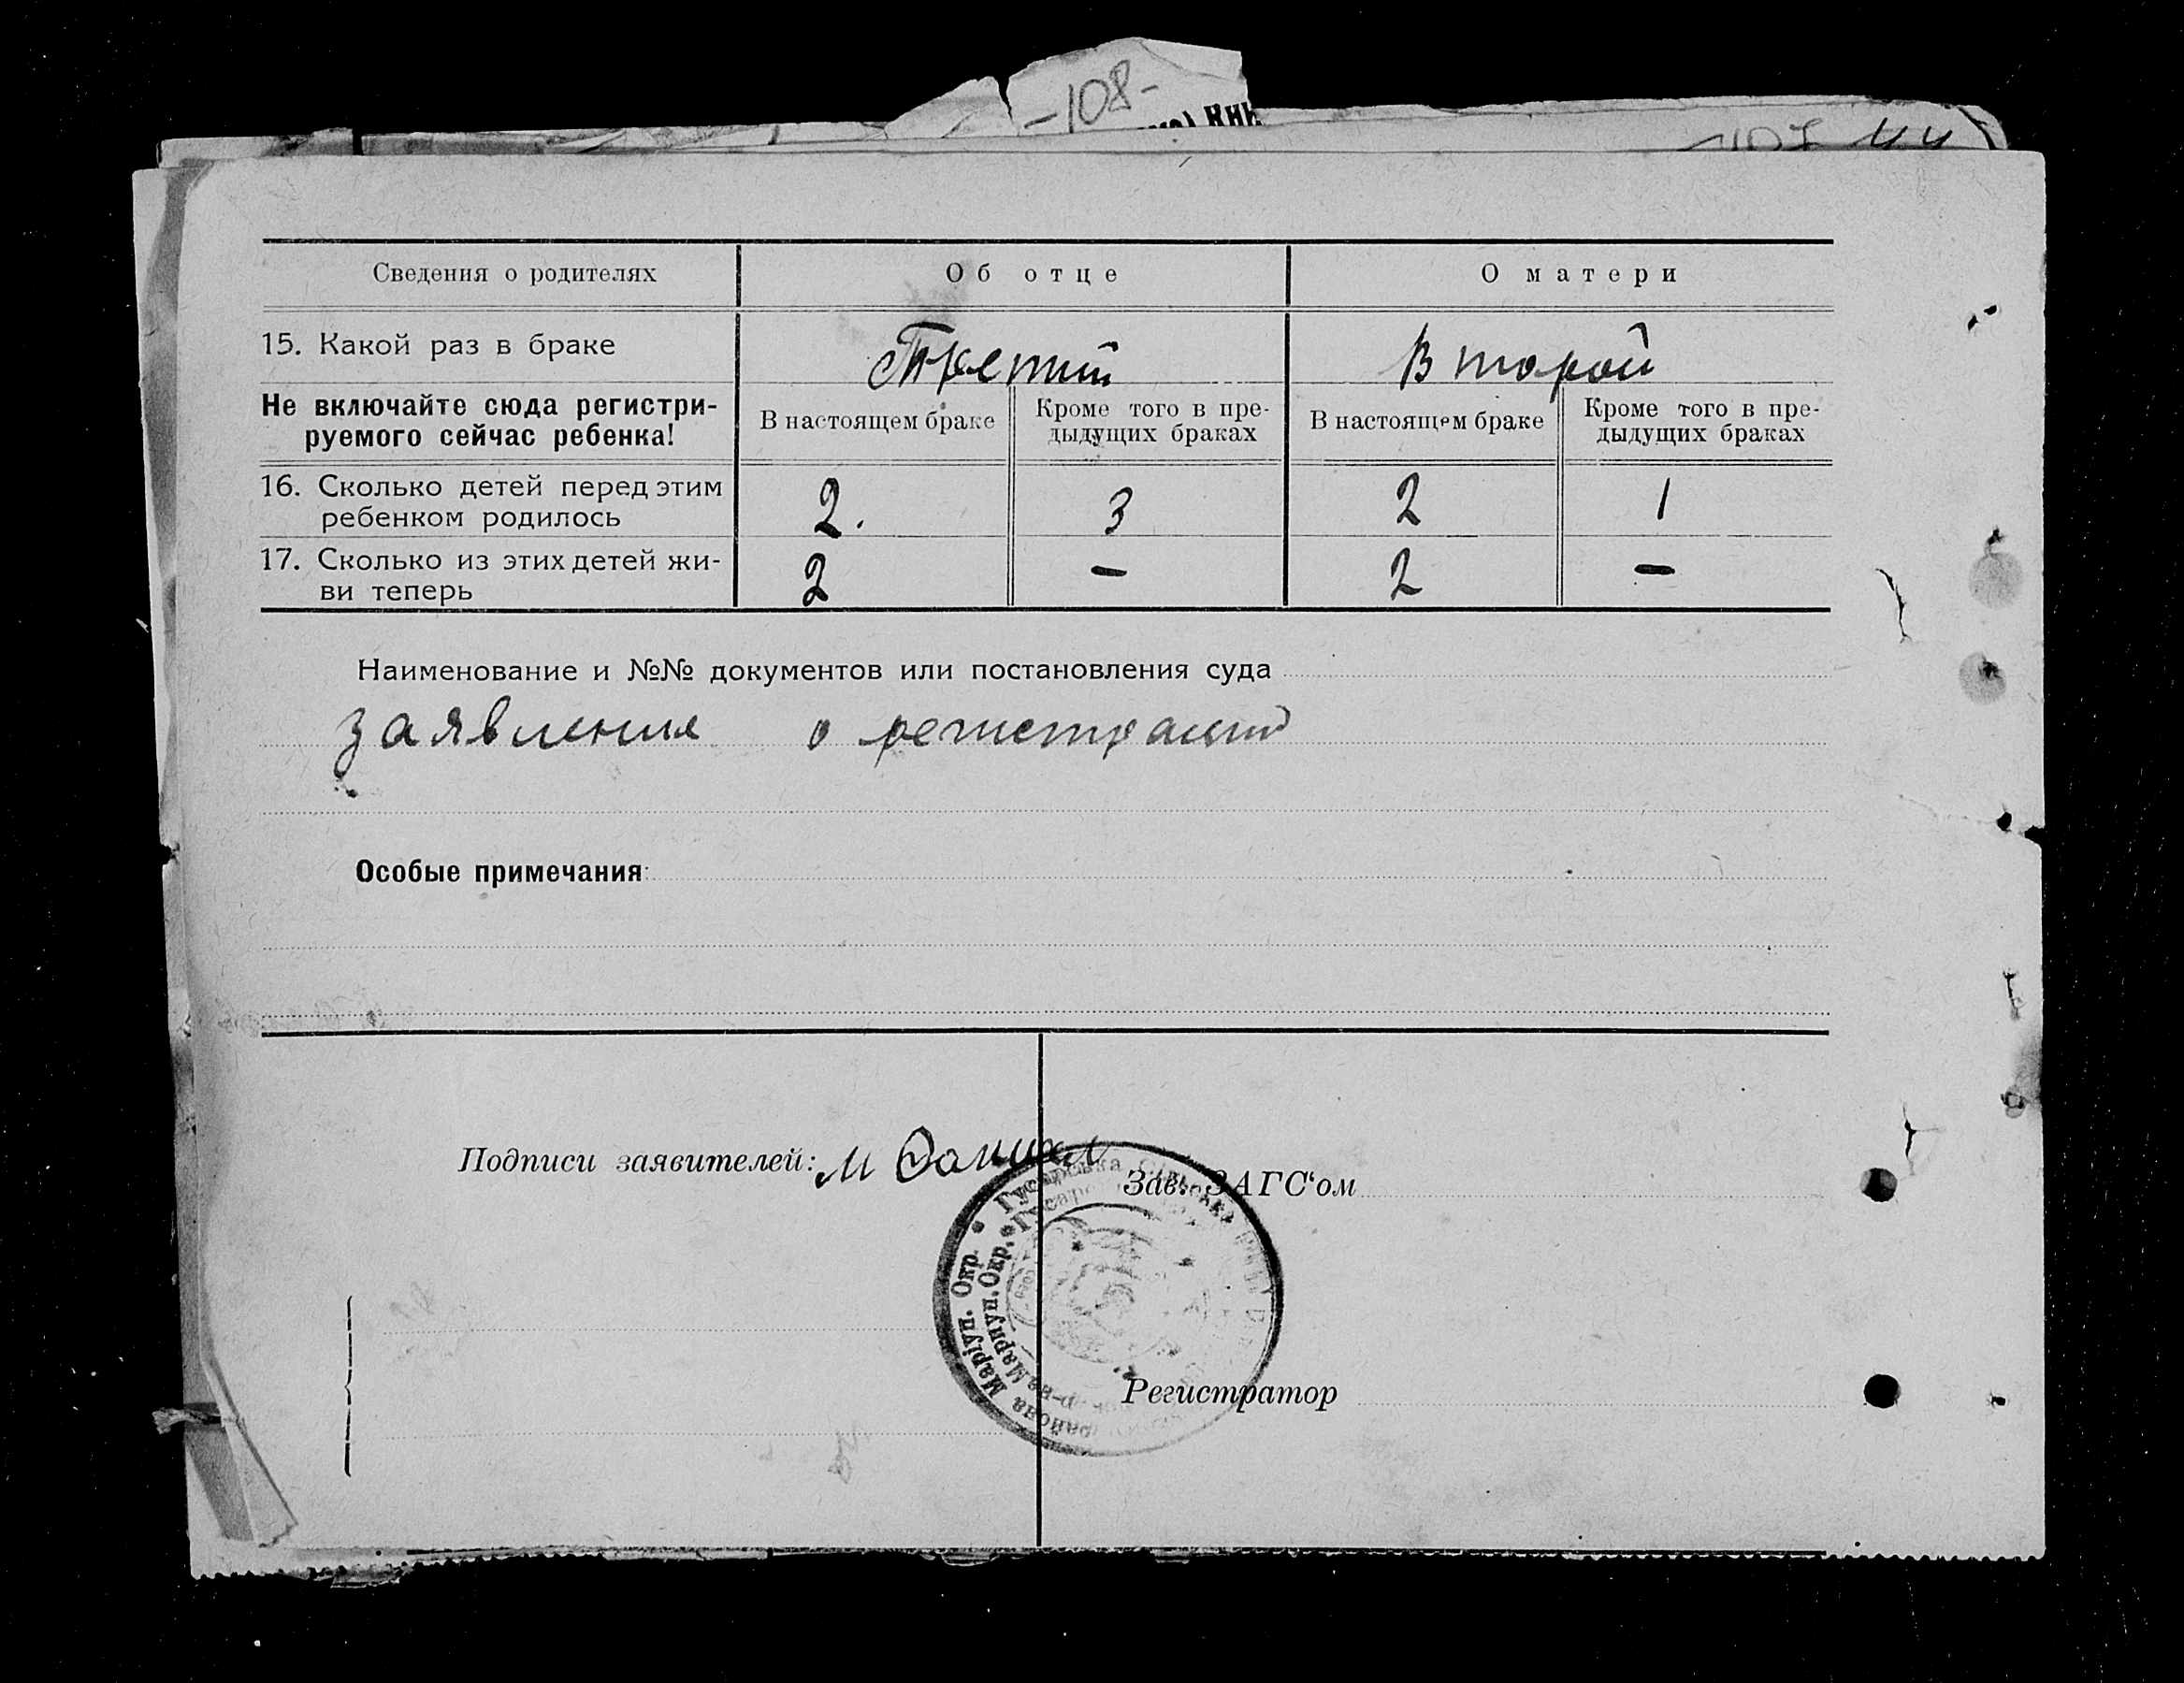 -108-
107
Сведения о родителях
Об отце
О матери
15. Какой раз в браке
Третий
Второй
Не включайте сюда регистри-
руемого сейчас ребенка!
В настоящем браке
Кроме того в пре-
дыдущих браках
В настоящем браке
Кроме того в пре-
дыдущих браках
16. Сколько детей перед этим
ребенком родилось
2.
3
2
1
17. Сколько из этих детей жи-
ви теперь
2
–
2
–
Наименование и №№ документов или постановления суда
заявления о регистрации
Особые примечания:
Подписи заявителей:
Зав. ЗАГС‘ом
Гусарівка
района Маріуп. Окр.
р-на Мариуп. Окр.
Регистратор